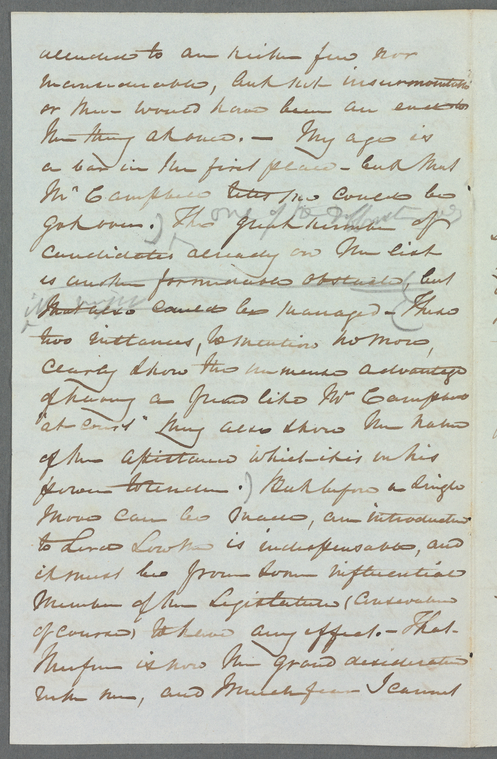 attended to are neither few nor
inconsiderable, but not insurmountable
or there would have been an end to
the thing at once. — My age is
a bar in the first place — but that
Mr Campbell tells me could be
got over. The great number of
candidates already on the list
is another formidable obstacle, but
that also could be managed — These
two instances, to mention no more,
clearly show the immense advantage
of having a friend like Mr Campbell
"at court" They also show the nature
of the assistance which it is in his
power to render.) But before a single
move can be made, an introduction
to Lord is indispensable, and
it must be from some influential
Member of the Legislature (Conservative
of course) to have any effect. — That
therefore is now the grand desideratum
with me, and I much fear I cannot